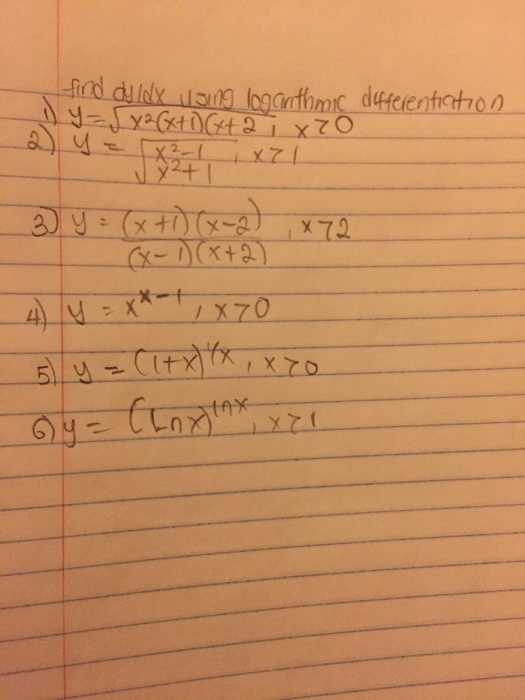 find dy/dx using logarithmic differentiation
1) y=√x²(x+1)(x+2, x>0
2) y = √x²-1/x²+1, x>1
3) y = (x+1)(x-2)/(x-1)(x+2), x>2
4) y = x^x-1, x>0
5) y = (1+x)^1/x, x>0
6) y = (Lnx)^lnx, x>1